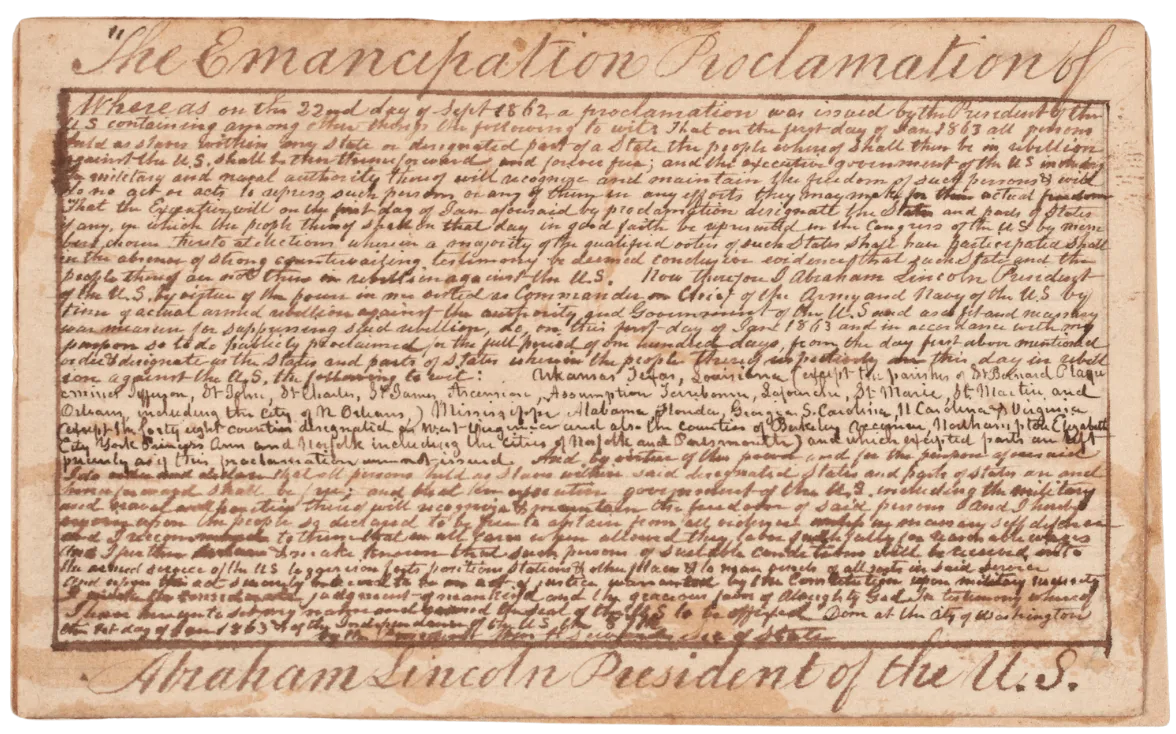 "The Emancipation Proclamation of
Whereas on the 22nd day of Sept 1862, a proclamation was issued by the President of the
U.S containing among other things the following to wit: That on the first day of Jan 1863 all persons
held as slaves within any State or designated part of a State the people whereof shall then be in rebellion
against the U.S. shall be then thenceforward and forever free; and the executive government of the US including
the military and naval authority thereof will recognize and maintain the freedom of such persons & will
do no act or acts to repress such persons or any of them in any efforts they may make for their actual freedom
That the Executive will on the first day of Jan aforesaid by proclamation designate the States and parts of States
if any, in which the people thereof shall on that day in good faith be represented in the Congress of the U.S by mem
bers chosen thereto at elections wherein a majority of the qualified voters of such States shall have participated shall
in the absence of strong countervailing testimony be deemed conclusive evidence that such State and the
people thereof are not then in rebellion against the U.S. Now therefore I Abraham Lincoln President
of the U.S. by virtue of the power in me vested as Commander in Chief of the Army and Navy of the U.S by
time of actual armed rebellion against the authority and Government of the U.S and as a fit and necessary
war measure for suppressing said rebellion, do, on this first day of Jan 1863 and in accordance with my
purpose so to do publicly proclaimed for the full period of one hundred days, from the day first above mentioned
order & designate as the States and parts of States wherein the people thereof respectively are this day in rebell
ion against the U.S. the following to wit: Arkansas Texas, Louisiana (except the parishes of St Bernard Plaqu
emines Jefferson, St John, St Charles, St James Ascension, Assumption Terrebonne, Lafourche, St Marie, St Martin, and
Orleans, including the City of N Orleans,) Mississippi Alabama Florida, Georgia S. Carolina, N Carolina & Virginia
(except the forty eight counties designated as West Virginia and also the counties of Berkeley Accomac Northampton Elizabeth
City York Princess Ann and Norfolk including the cities of Norfolk and Portsmouth) and which excepted parts are left
precisely as if this proclamation were not issued. And by virtue of the power and for the purpose aforesaid
I do order and declare that all persons held as slaves within said designated States and parts of states are and
henceforward shall be free; and that the executive government of the U.S. including the military
and naval authorities thereof will recognize & maintain the freedom of said persons and I hereby
enjoin upon the people so declared to be free to abstain from all violence unless in necessary self defense
and I recommend to them that in all cases when allowed they labor faithfully for reasonable wages
And I further declare & make known that such persons of suitable condition will be received into
the armed service of the US to garrison forts positions stations & other places & to man vessels of all sorts in said service
And upon this act sincerely believed to be an act of justice warranted by the Constitution upon military necessity
I invoke the considerate judgment of mankind and the gracious favor of Almighty God In testimony whereof
I have hereunto set my name and caused the seal of the U.S to be affixed Done at the City of Washington
the 1st day of Jan 1863 & of the Independence of the U.S. the
by the President Wm H Seward Sec of State
Abraham Lincoln President of the U.S.